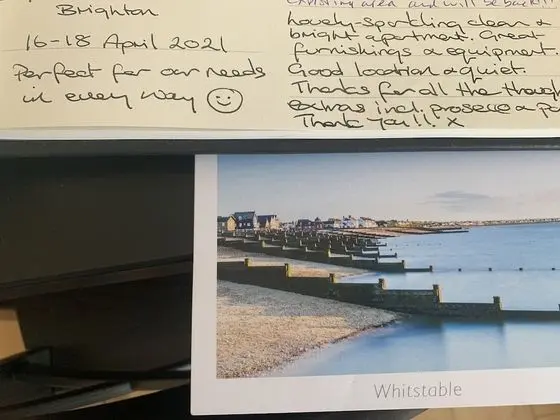 Brighton
16-18 April 2021
Perfect for our needs
in every way
existing area and will be back!!
Lovely-sparkling clean &
bright apartment. Great
furnishings & equipment.
Good location & quiet.
Thanks for all the
extras incl. prosecco &
Thank you!! x
Whitstable